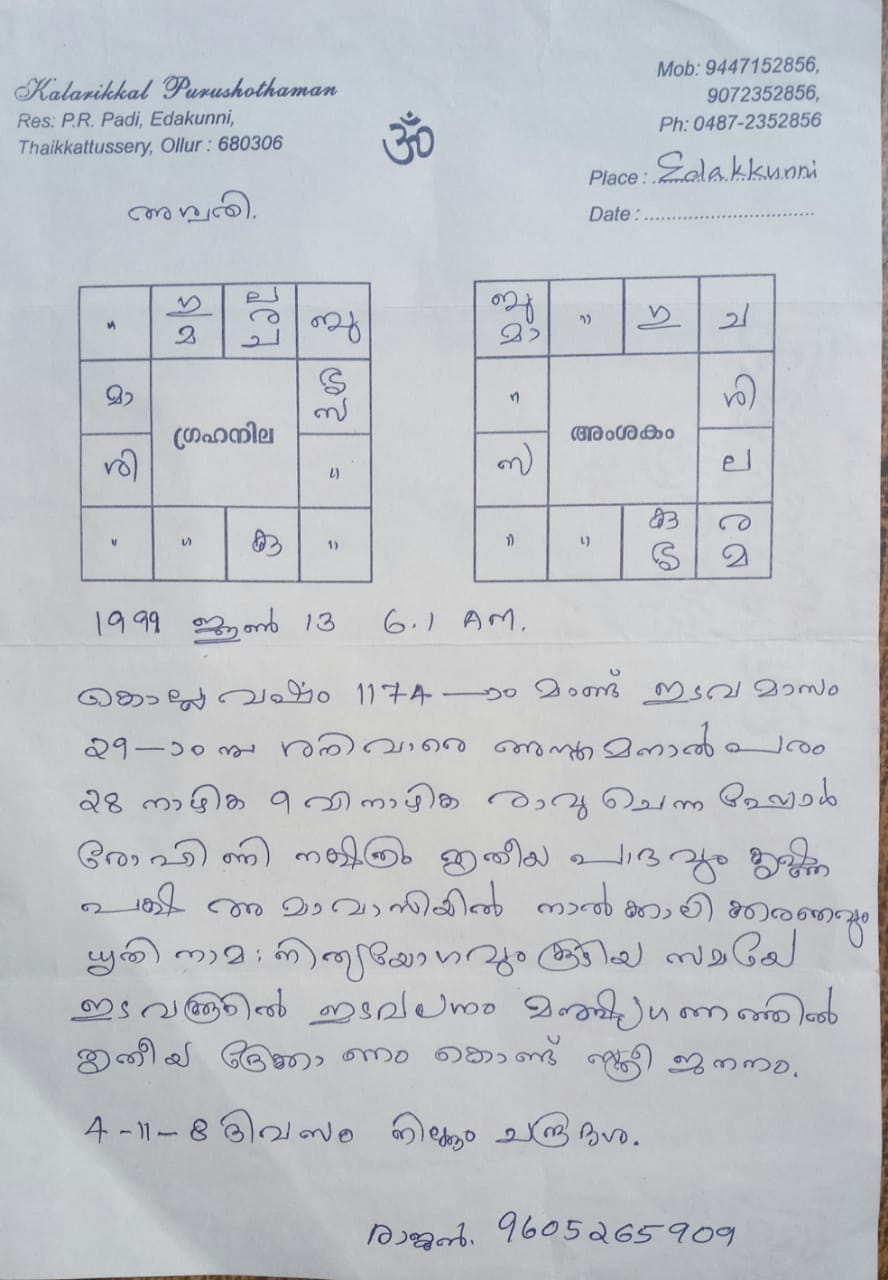 Kalarikkal Purushothaman
Res: P.R. Padi, Edakunni,
Thaikkattussery, Ollur : 680306
ॐ
Mob: 9447152856,
9072352856,
Ph: 0487-2352856
Place : Edakkunni
Date :
അശ്വതി.
" ഗു മ ല ര ച ബു
മാ ശു സ
ഗ്രഹനില
ശി "
" " കു "
ബു മാ " ഗു ച
" ശി
അംശകം
സ ല
" " കു ശു ര മ
1999 ജൂൺ 13 6.1 AM.
കൊല്ല വർഷം 1174-ാം മാണ്ട് ഇടവ മാസം
29-ാം നു ശനിവാരെ അസ്തമനാൽ പരം
28 നാഴിക 9 വിനാഴിക രാവു ചെന്ന
രോഹിണി നക്ഷത്രം പാദവും കൃഷ്ണ
പക്ഷ അമാവാസിയിൽ നാൽക്കാലി കരണവും
ധൃതി നാമ: നിത്യയോഗവും കൂടിയ സമയേ
ഇടവത്തിൽ ഇടവലഗ്നം മനുഷ്യഗണത്തിൽ
ദ്രേക്കാണം കൊണ്ട് സ്ത്രീ ജനനം.
4-11-8 ദിവസം നില്ക്കും ചന്ദ്രദശ.
രാജൻ. 9605265909